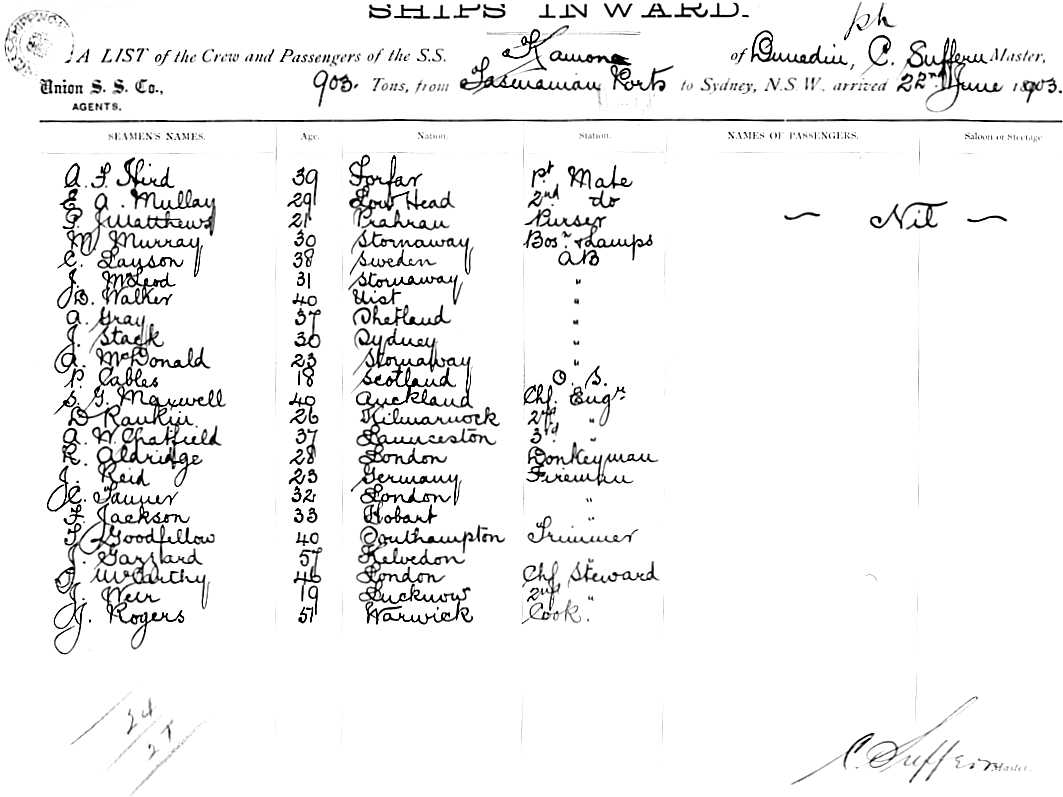 SHIPS INWARD.
ph
A LIST of the Crew and Passengers of the S.S. Kamona of Dunedin, C. Suffern Master,
Union S. S. Co., 903. Tons, from Tasmanian Ports to Sydney, N.S.W. arrived 22nd June 1903.
AGENTS.
SEAMEN'S NAMES. Age. Nation. Station. NAMES OF PASSENGERS. Saloon or Steerage
A. F. Hird 39 Forfar 1st Mate
E. A. Mullay 29 Low Head 2nd do
P. J Matthews 21 Prahran Purser — Nil —
M. Murray 30 Stornaway Bosn & Lamps
C. Layson 38 Sweden AB
J. McLeod 31 Stornaway "
D. Walker 40 Uist "
A. Gray 37 Shetland "
J. Stack 30 Sydney "
A. McDonald 23 Stornaway "
P. Cables 18 Scotland O. S.
S. G. Maxwell 40 Auckland Chf. Engr
D Rankin 26 Kilmarnock 2nd "
A. W. Chatfield 37 Launceston 3rd "
R. Aldridge 28 London Donkeyman
J. Reid 23 Germany Fireman
C. Tanner 32 London "
F. Jackson 33 Hobart "
F. Goodfellow 40 Southampton Trimmer
J. Gazzard 57 Kelvedon "
J. McCarthy 46 London Chf Steward
J. Weir 19 Lucknow 2nd "
J. Rogers 51 Warwick Cook.
24
27
C. Suffern Master.